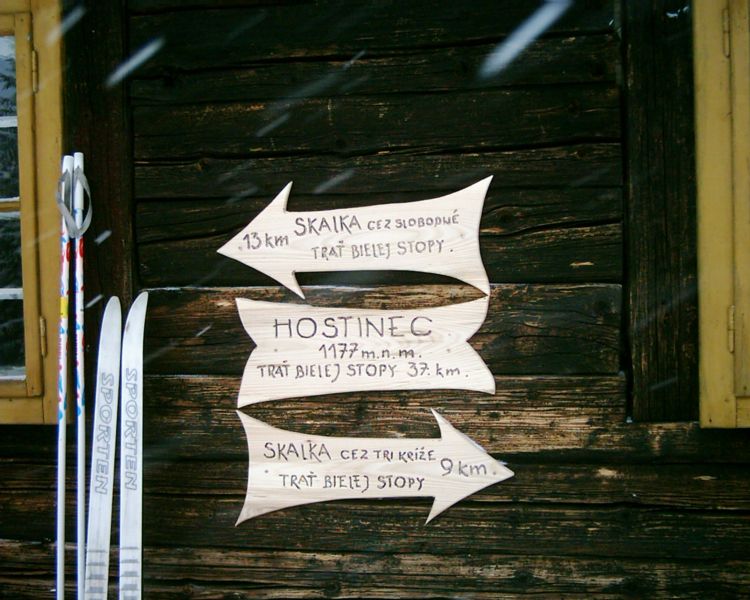 13 km SKALKA CEZ SLOBODNÉ
TRAŤ BIELEJ STOPY.
HOSTINEC
1177 m.n.m.
TRAŤ BIELEJ STOPY 37. km.
SKALKA CEZ TRI KRÍŽE 9 km.
TRAŤ BIELEJ STOPY
SPORTEN
SPORTEN